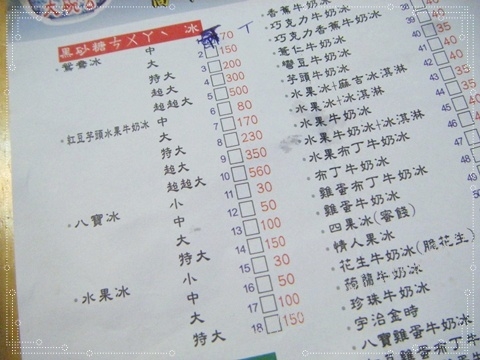 黑砂糖ㄘㄨㄚˋ冰
鴛鴦冰 中 70
大 2 150
特大 3 200
超大 4 300
超超大 5 500
紅豆芋頭水果牛奶冰 中 6 80
大 7 170
特大 8 230
超大 9 350
超超大 10 560
八寶冰 小 11 30
中 12 50
大 13 100
特大 14 150
水果冰 小 15 30
中 16 50
大 17 100
特大 18 150
香蕉牛奶冰
巧克力牛奶冰
巧克力香蕉牛奶冰
薏仁牛奶冰
彎豆牛奶冰
芋頭牛奶冰
水果冰+麻吉冰淇淋
水果冰+冰淇淋
水果牛奶冰
水果牛奶冰+冰淇淋
水果布丁牛奶冰
布丁牛奶冰
雞蛋布丁牛奶冰
雞蛋牛奶冰
四果冰(蜜餞)
情人果冰
花生牛奶冰(脆花生)
蒟蒻牛奶冰
珍珠牛奶冰
宇治金時
八寶雞蛋牛奶冰